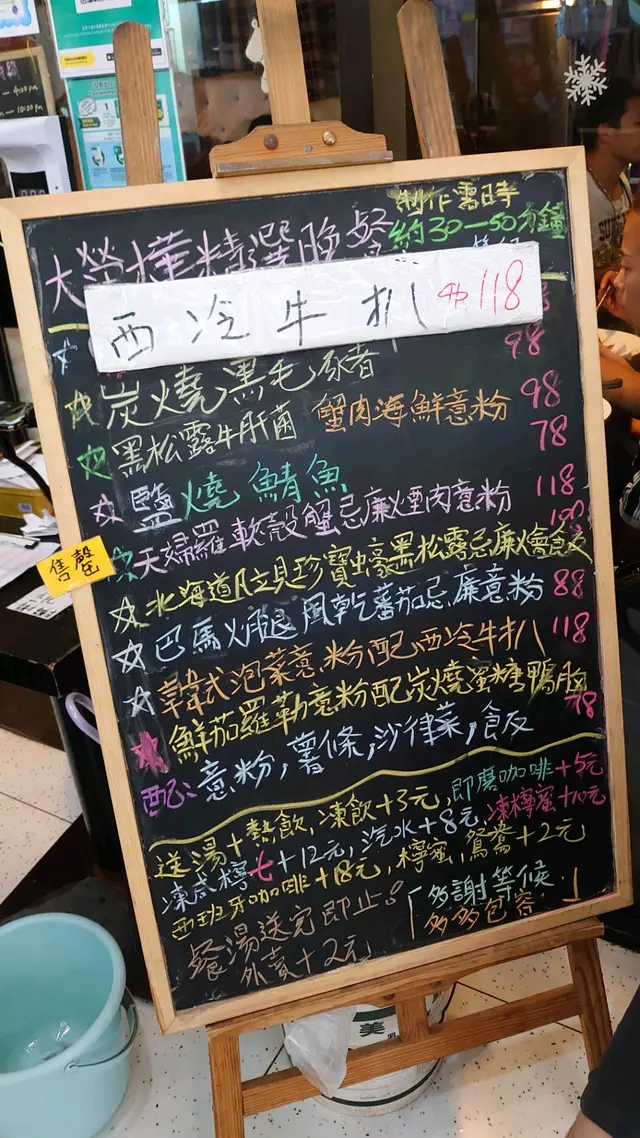 制作需時
大勞樺精選晚餐 約30-50分鐘
西冷牛扒 $118
炭燒黑毛豬 98
黑松露牛肝菌 蟹肉海鮮意粉 98
鹽燒鯖魚 78
天婦羅軟殼蟹忌廉煙肉意粉 118
售罄
北海道帶貝珍寶蠔黑松露忌廉燴飯 100
巴馬火腿風乾蕃茄忌廉意粉 88
韓式泡菜意粉配西冷牛扒 118
鮮茄羅勒意粉配炭燒蜜糖鴨胸 78
配:意粉,薯條,沙律菜,飯
送湯+熱飲,凍飲+3元,即磨咖啡+5元
凍咸檸七+12元,汽水+8元,凍檸蜜+10元
西班牙咖啡+18元,檸蜜,鴛鴦+2元
餐湯送完即止。
外賣+2元
「多謝等候
多多包容」
美